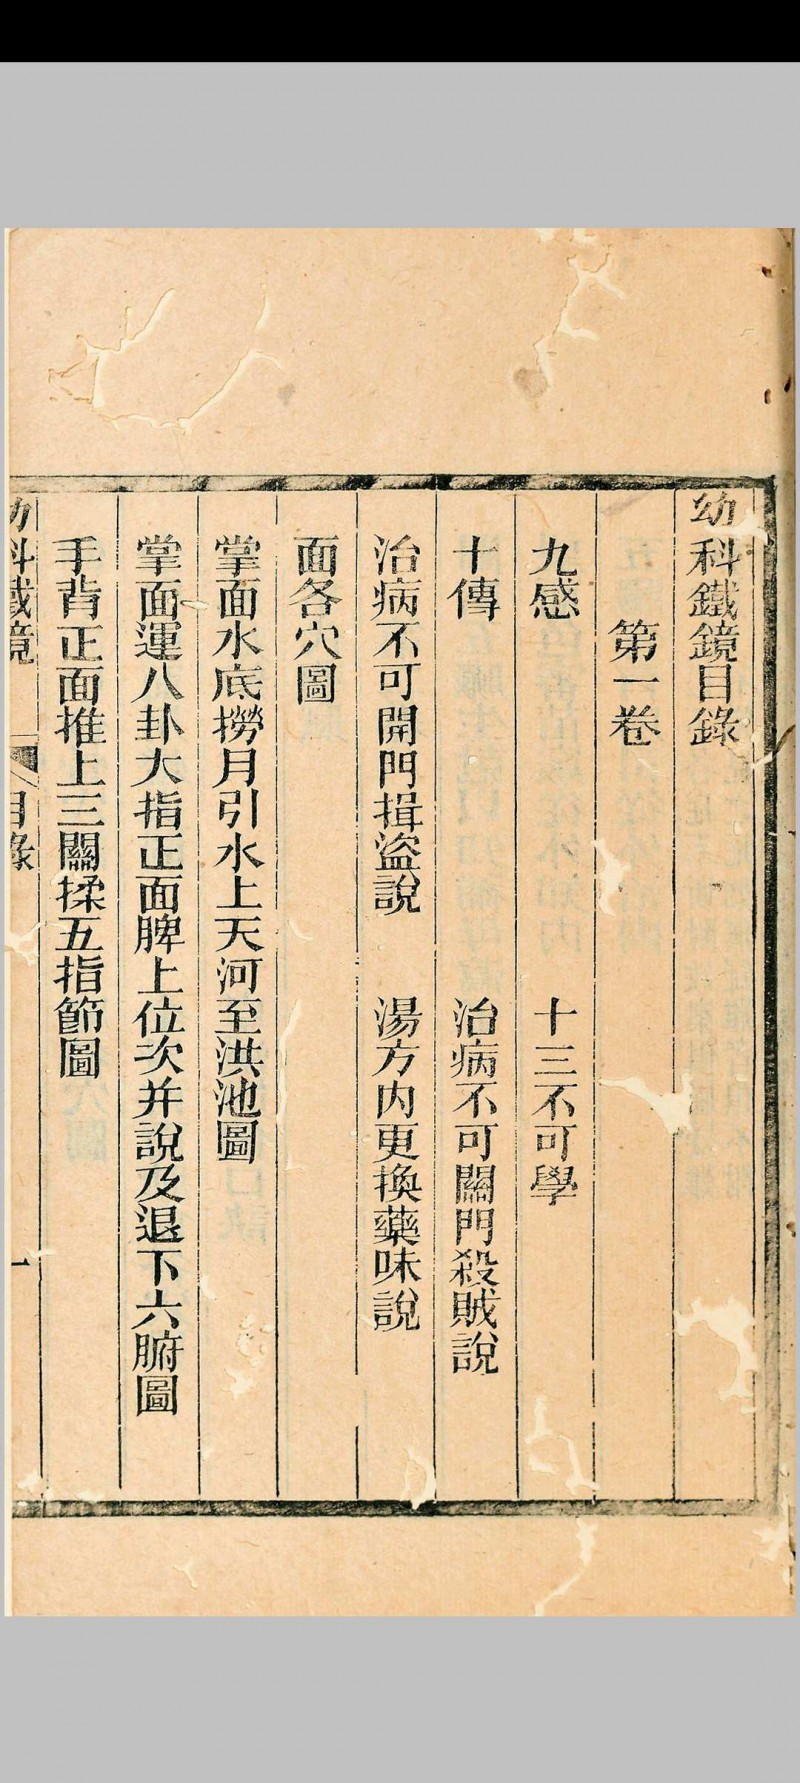 幼科鐵鏡目錄
第一卷
九感　十三不可學
十傳　治病不可關門殺賊說
治病不可開門揖盜說　湯方內更換藥味說
面各穴圖
掌面水底撈月引水上天河至洪池圖
掌面運八卦大指正面脾上位次并說及退下六腑圖
手背正面推上三關揉五指節圖
幼科鐵鏡　目錄　一